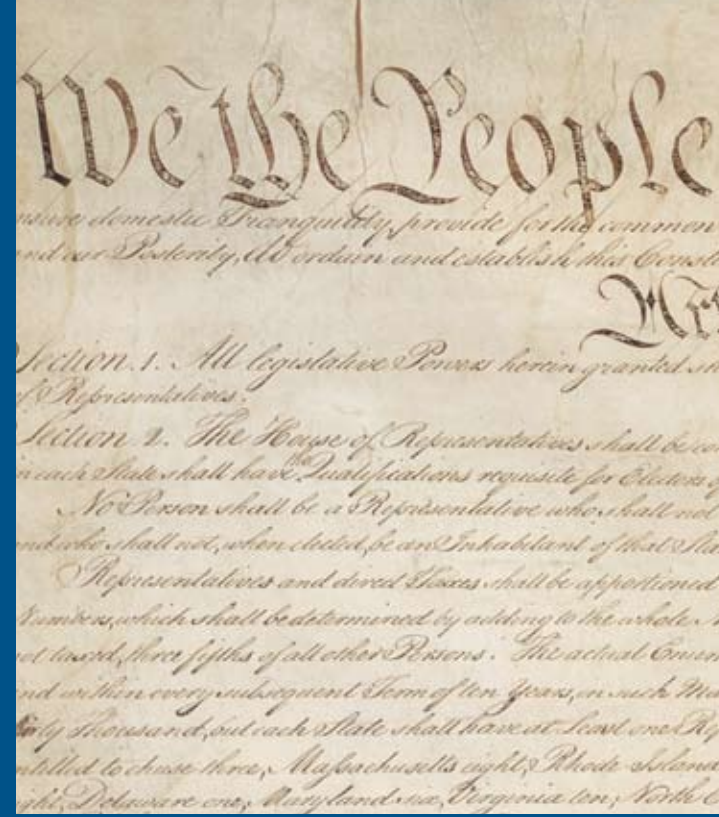 We the People
nsure domestic Tranquility, provide for the common
nd our Posterity, do ordain and establish this Const
Art
Section. 1. All legislative Powers herein granted sh
of Representatives.
Section. 2. The House of Representatives shall be co
in each State shall have the Qualifications requisite for Electors of
No Person shall be a Representative who shall not
and who shall not, when elected, be an Inhabitant of that Sta
Representatives and direct Taxes shall be apportioned
Numbers, which shall be determined by adding to the whole N
ot taxed, three fifths of all other Persons. The actual Enum
and within every subsequent Term of ten Years, in such Ma
thirty Thousand, but each State shall have at Least one Rep
ntitled to chuse three, Massachusetts eight, Rhode Island
ight, Delaware one, Maryland six, Virginia ten, North C